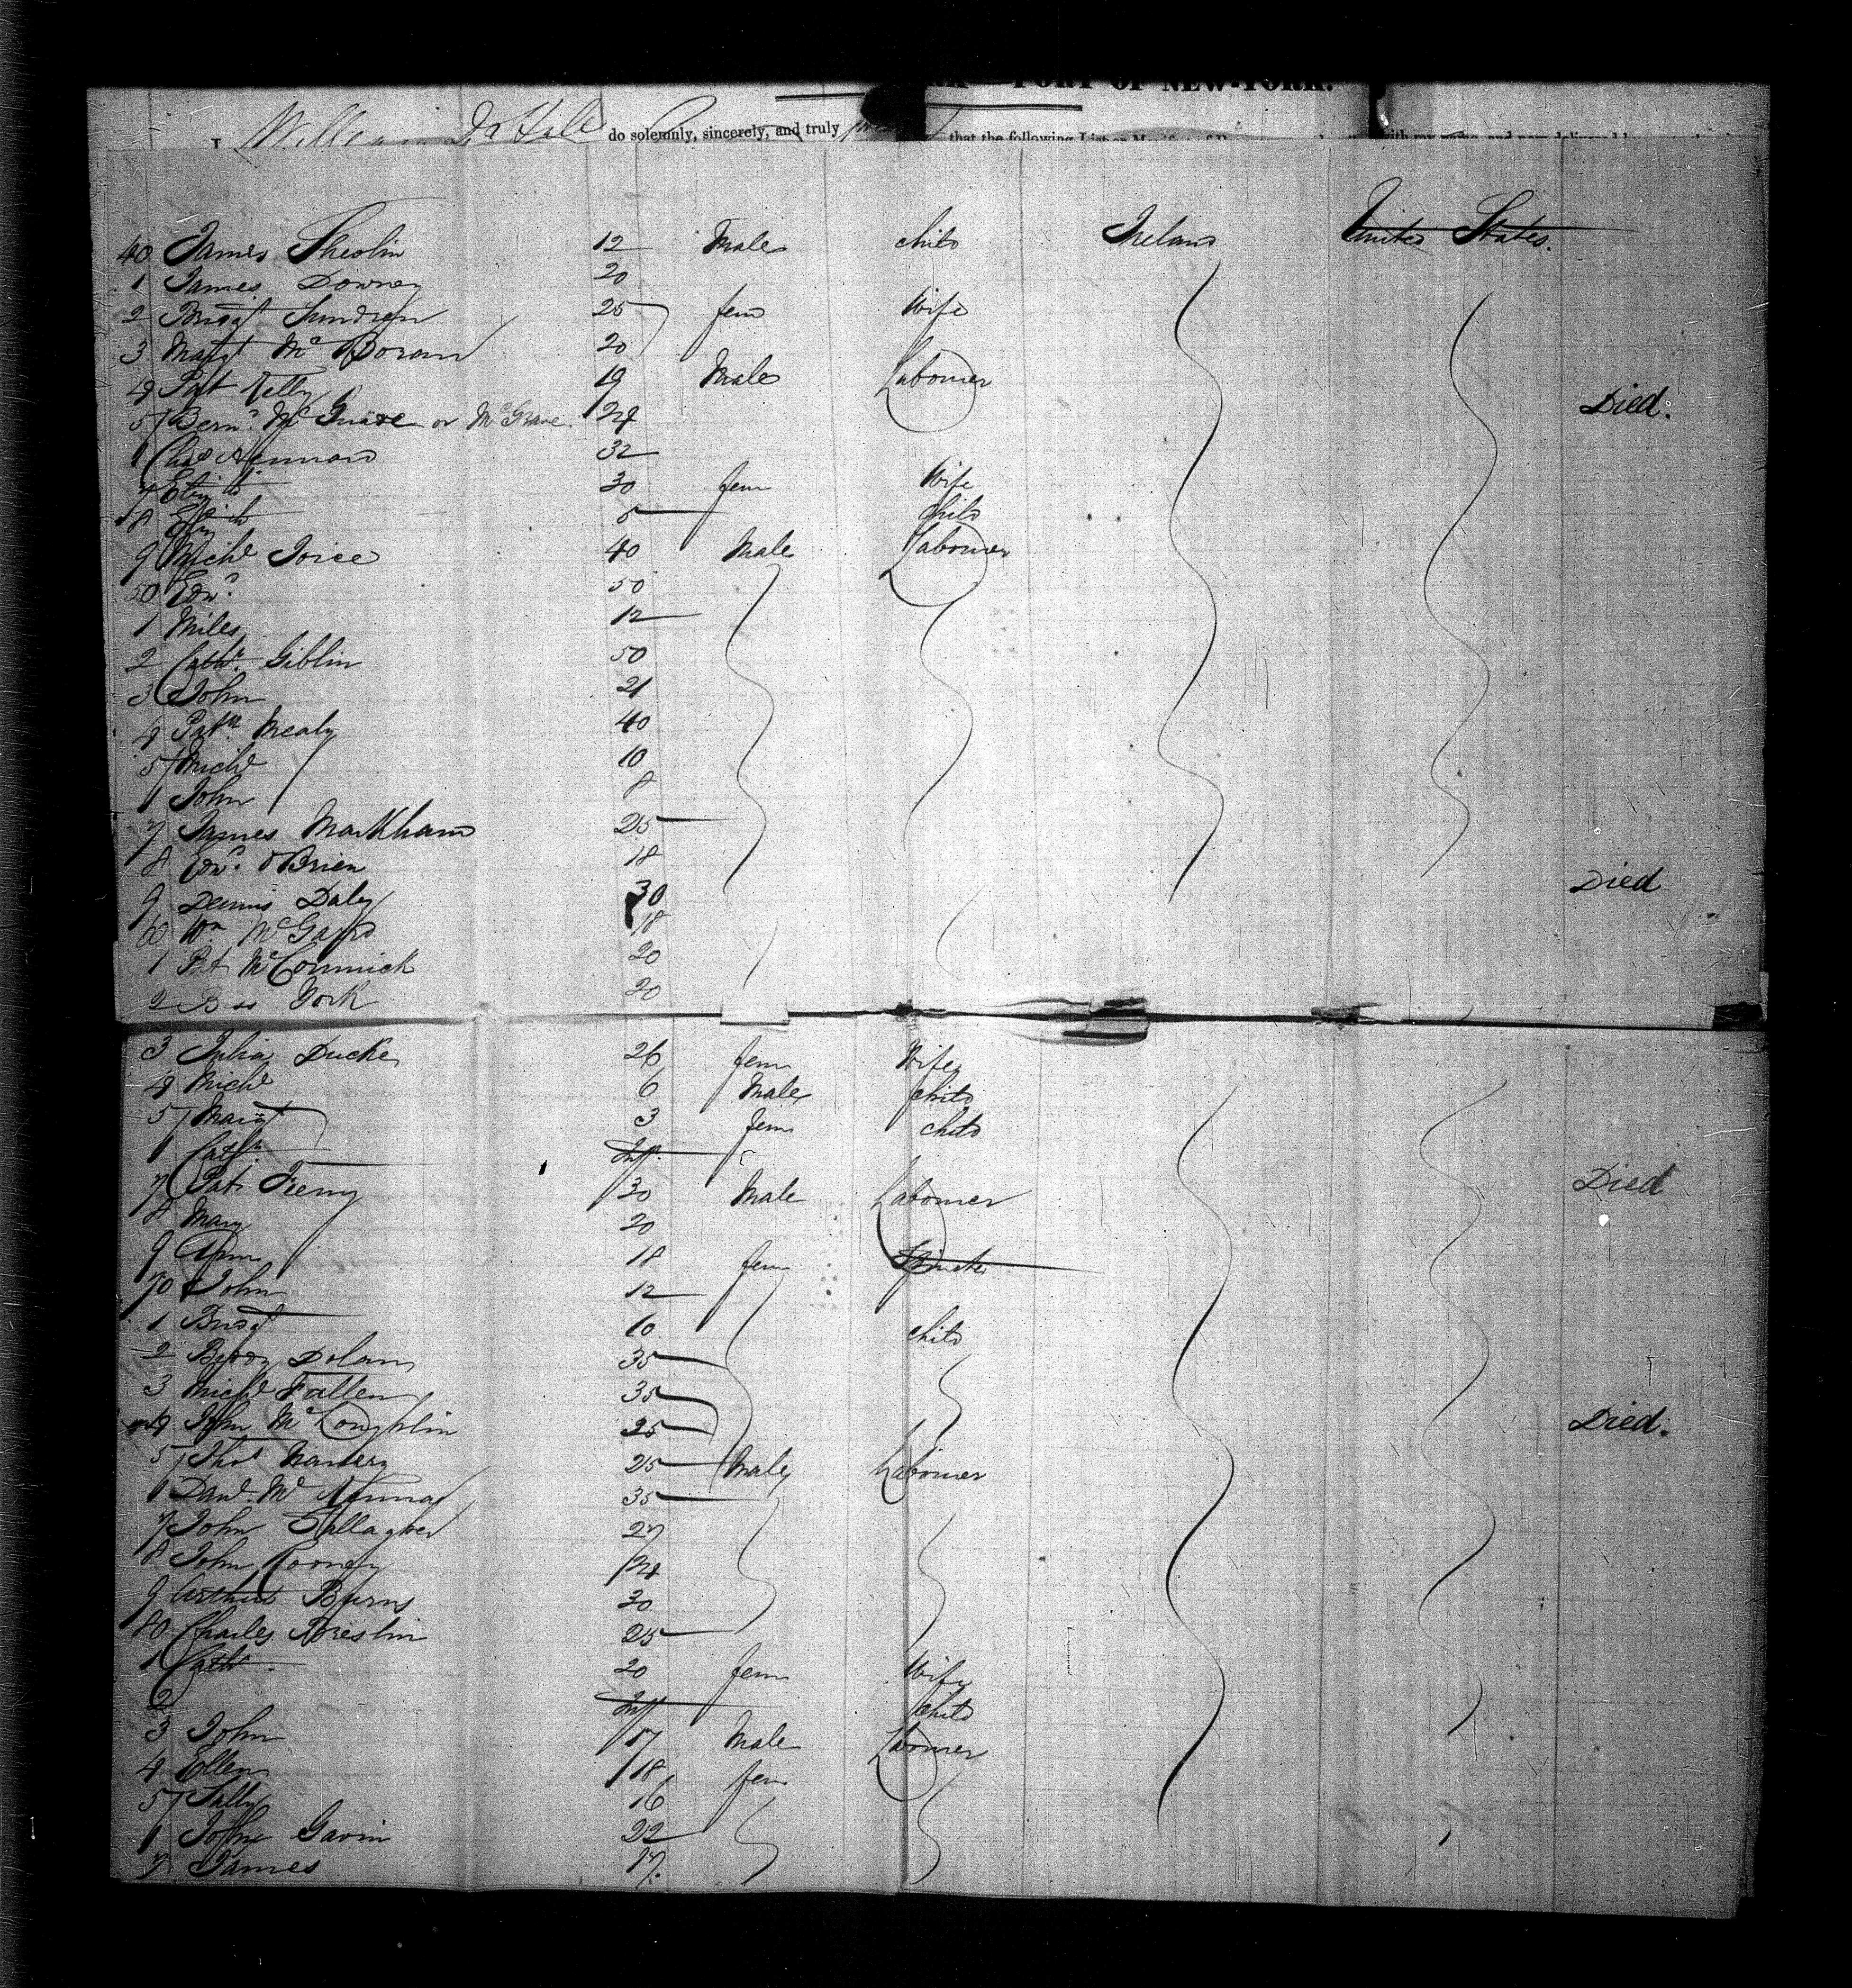 PORT OF NEW-YORK.
I, William do solemnly, sincerely, and truly that the following List or
40 James 12 Male child Ireland United States.
1 James Downey 20
2 Bridgt 25 fem Wife
3 Margt Mc 20
4 Pat Kelly 19 Male Labourer
5 Bernd. Mc or McGrave 24 Died.
6 Chas 32
7 Eliz 30 fem Wife
8 5 child
9 Michl Joice 40 Male Labourer
50 Edwd. 50
1 Miles 12
2 Cathe. Giblin 50
3 John 21
4 Patk Mealy 40
5 Michl 10
6 John 8
7 James Markham 25
8 Edwd. OBrien 18
9 Dennis Daley 30 Died
60 Wm 18
1 Pat McCormick 20
2 York 20
3 Julia Ducke 26 fem Wife
4 Michl 6 Male child
5 Margt 3 fem child
6 Cathe. Inf.
7 Pat. 30 Male Labourer Died
8 Mary 20
9 Ann 18 fem
70 John 12
1 Bridgt 10 child
2 Dolan 35
3 Michl Fallen 35
4 John McLoughlin 25 Died.
5 Thos 25 Male Labourer
6 Danl. Mc 35
7 John Gallagher 27
8 John Rooney 24
9 Arthur Burns 30
80 Charles Breslin 25
1 Cathe. 20 fem Wife
2 Inf child
3 John 17 Male Labourer
4 Ellen 18 fem
5 Sally 16
6 John Gavin 22
7 James 17.